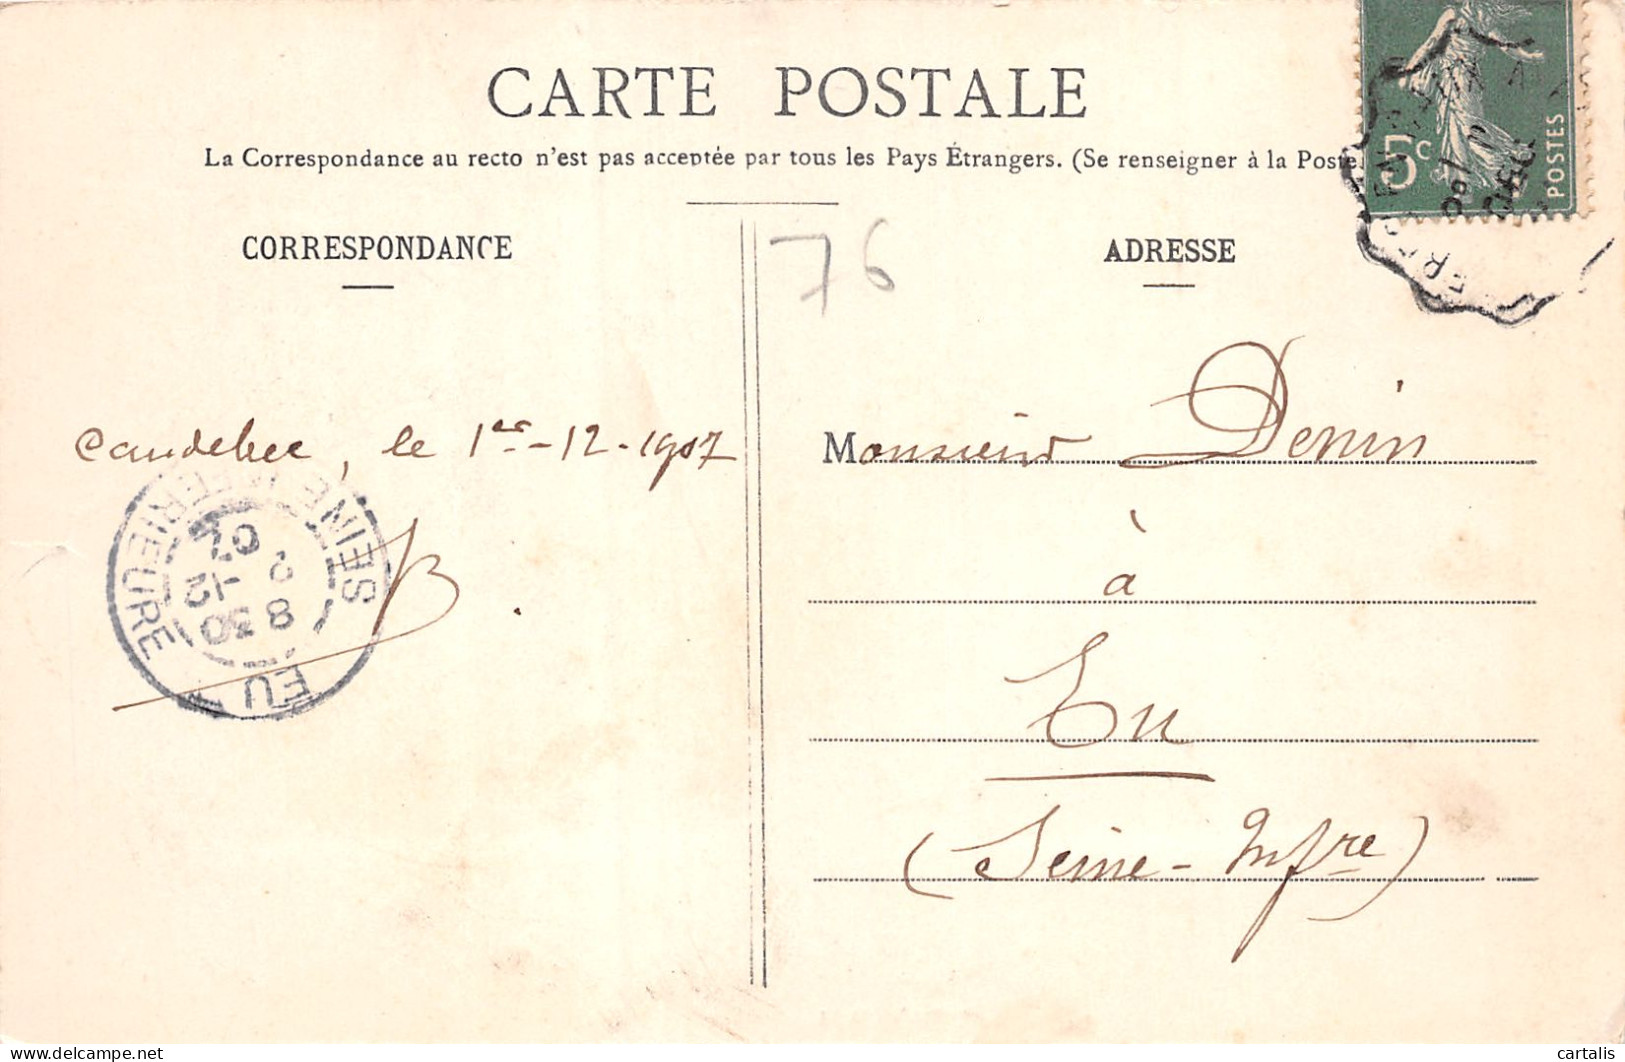 CARTE POSTALE
La Correspondance au recto n'est pas acceptée par tous les Pays Étrangers. (Se renseigner à la Poste
5c
POSTES
CORRESPONDANCE
76
ADRESSE
Caudebec, le 1er-12-1907
B.
SEINE INFERIEURE
8 30
2 - 12
07
EU
Monsieur Denin
à
Eu
(Seine-Infre)
delcampe.net
cartalis